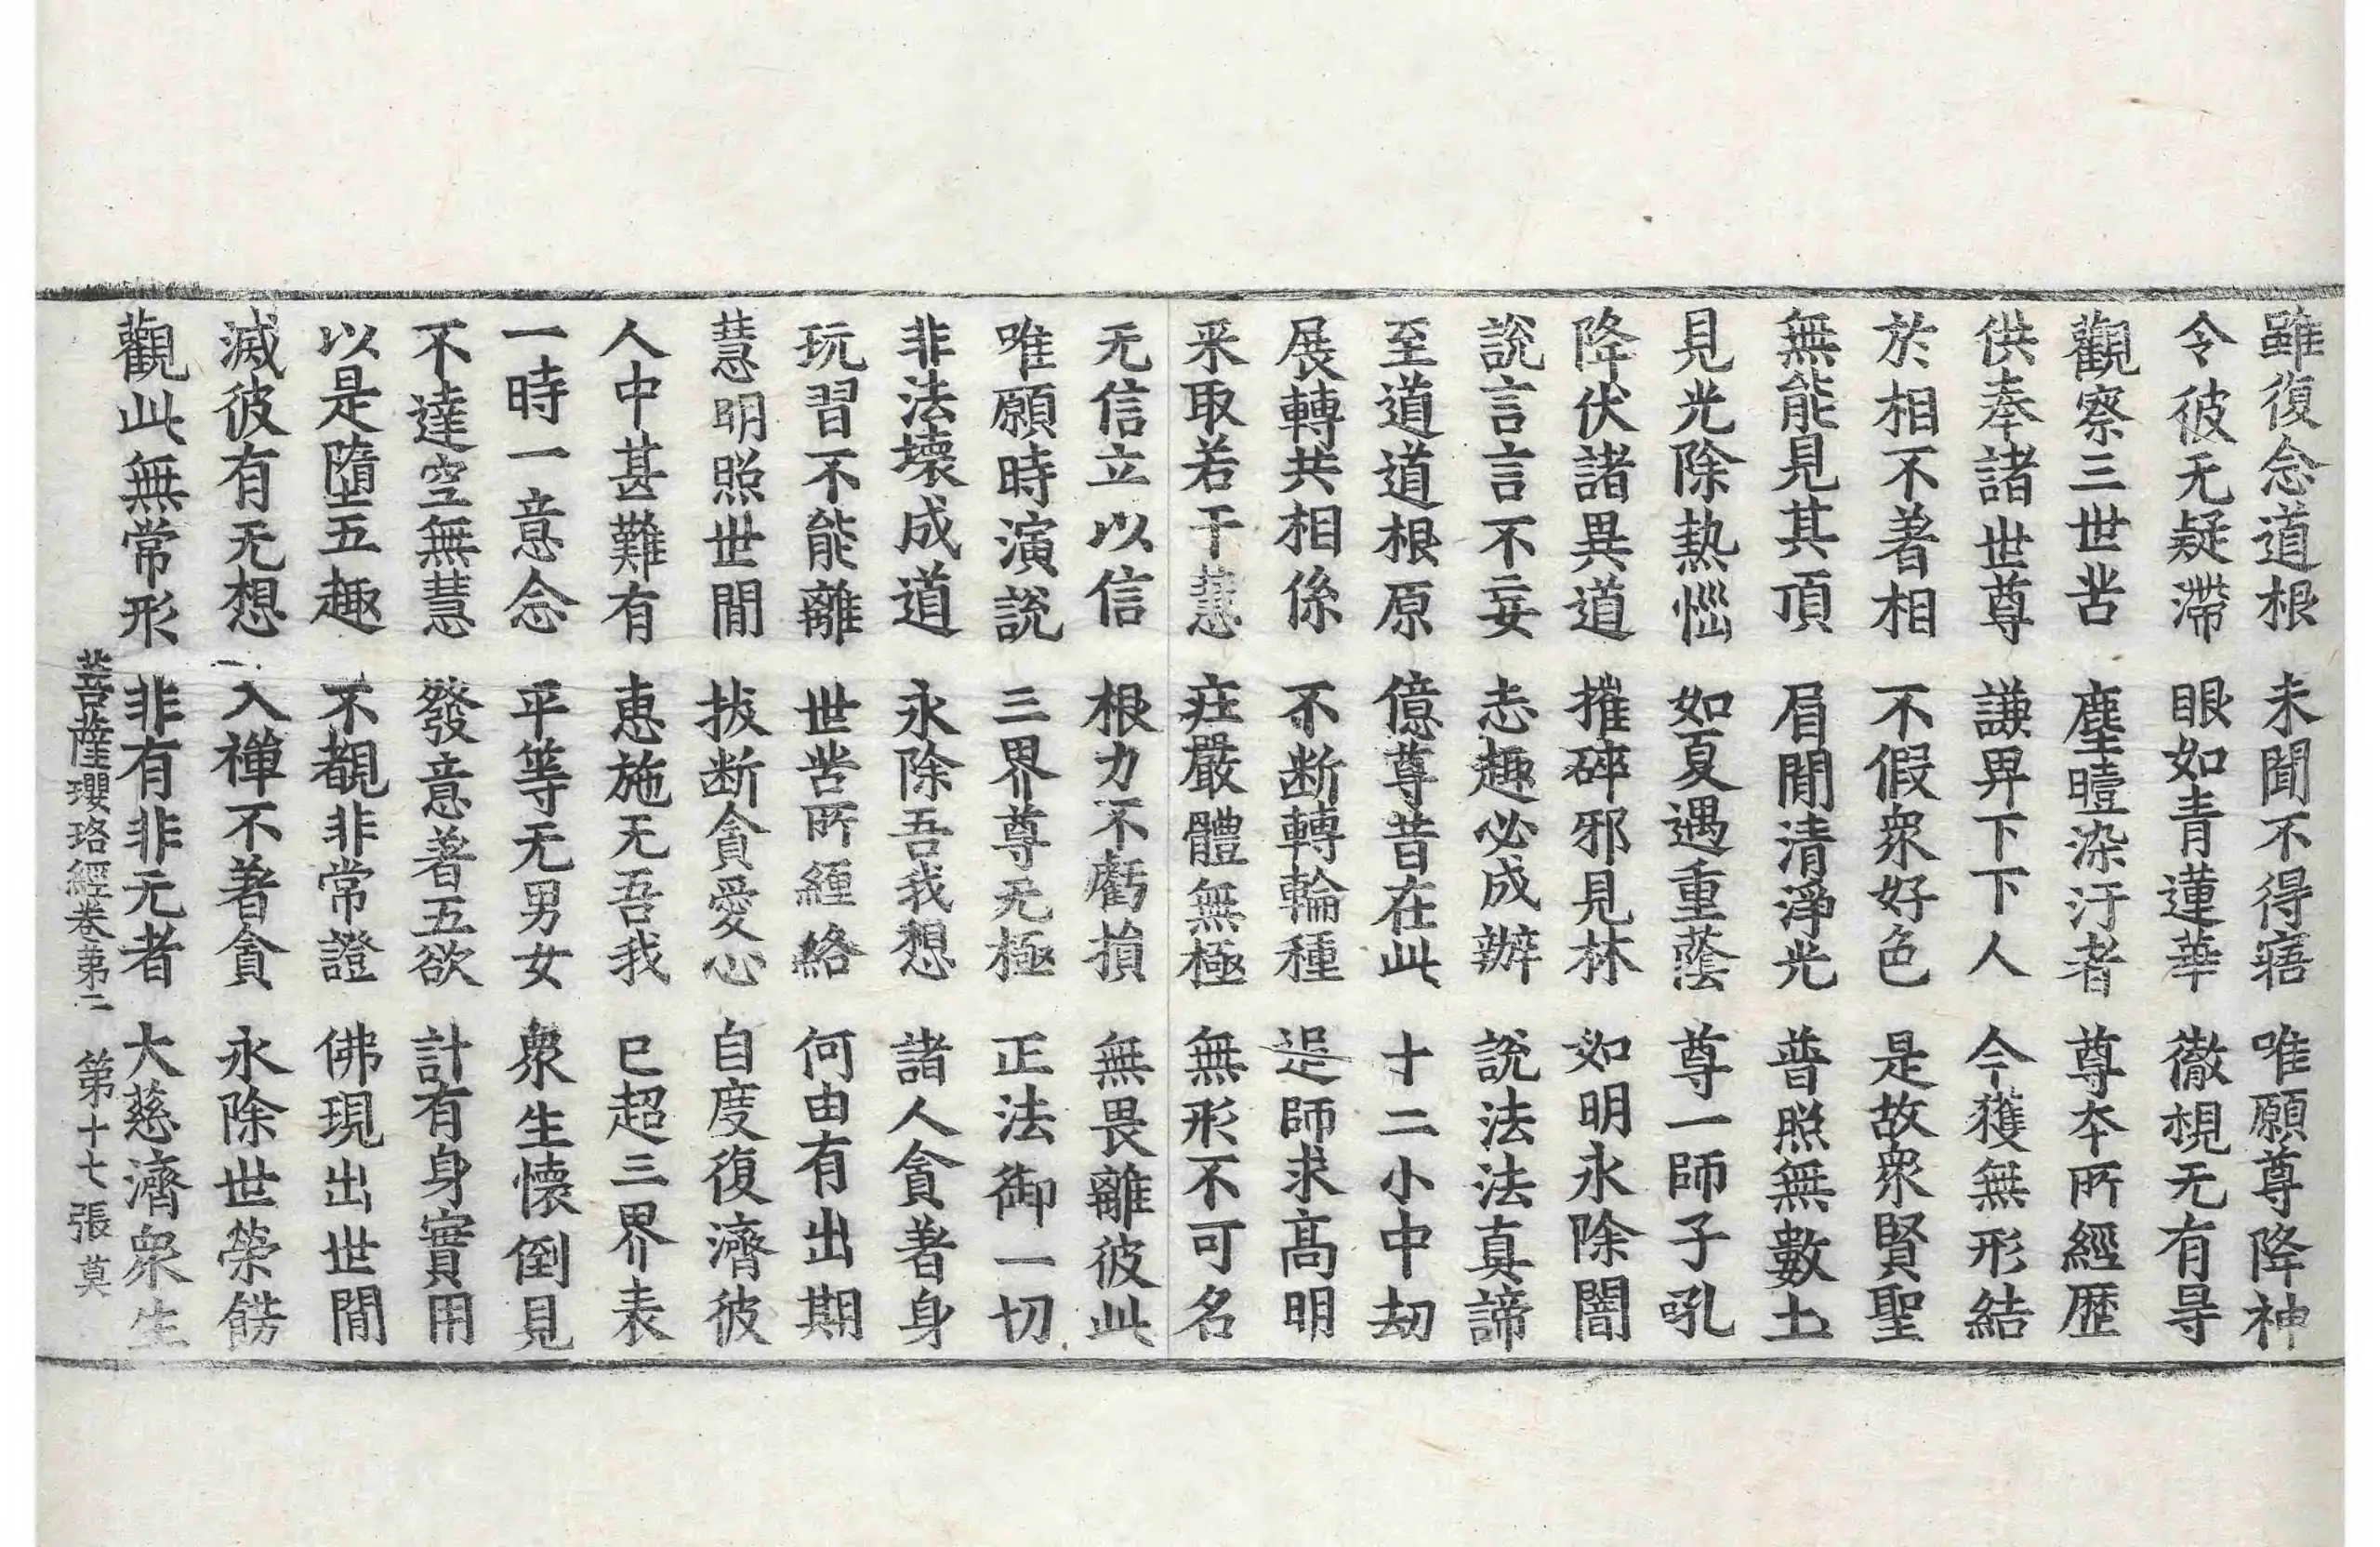 雖復念道根 未聞不得寤 唯願尊降神
令彼无疑滯 眼如青蓮華 徹覩无有㝵
觀察三世苦 塵曀染汙者 尊夲所經歷
供奉諸世尊 謙畀下下人 今獲無形結
於相不著相 不假衆好色 是故衆賢聖
無能見其頂 眉閒清淨光 普照無數土
見光除熱惱 如夏遇重蔭 尊一師子吼
降伏諸異道 摧碎邪見林 如明永除闇
說言言不妄 志趣必成辦 說法法真諦
至道道根原 億尊昔在此 十二小中劫
展轉共相係 不断轉輪種 是師求高明
采取若干慧 庄嚴體無極 無形不可名
无信立以信 根力不虧損 無畏離彼此
唯願時演說 三界尊无極 正法御一切
非法壞成道 永除吾我想 諸人貪著身
玩習不能離 世苦所纏絡 何由有出期
慧明照世間 拔断貪愛心 自度復濟彼
人中甚難有 惠施无吾我 已超三界表
一時一意念 平等无男女 衆生懷倒見
不達空無慧 發意著五欲 計有身實用
以是墮五趣 不覩非常證 佛現出世間
滅彼有无想 入禪不著貪 永除世榮餝
觀此無常形 非有非无者 大慈濟衆生
菩薩瓔珞經卷第二 第十七張 莫